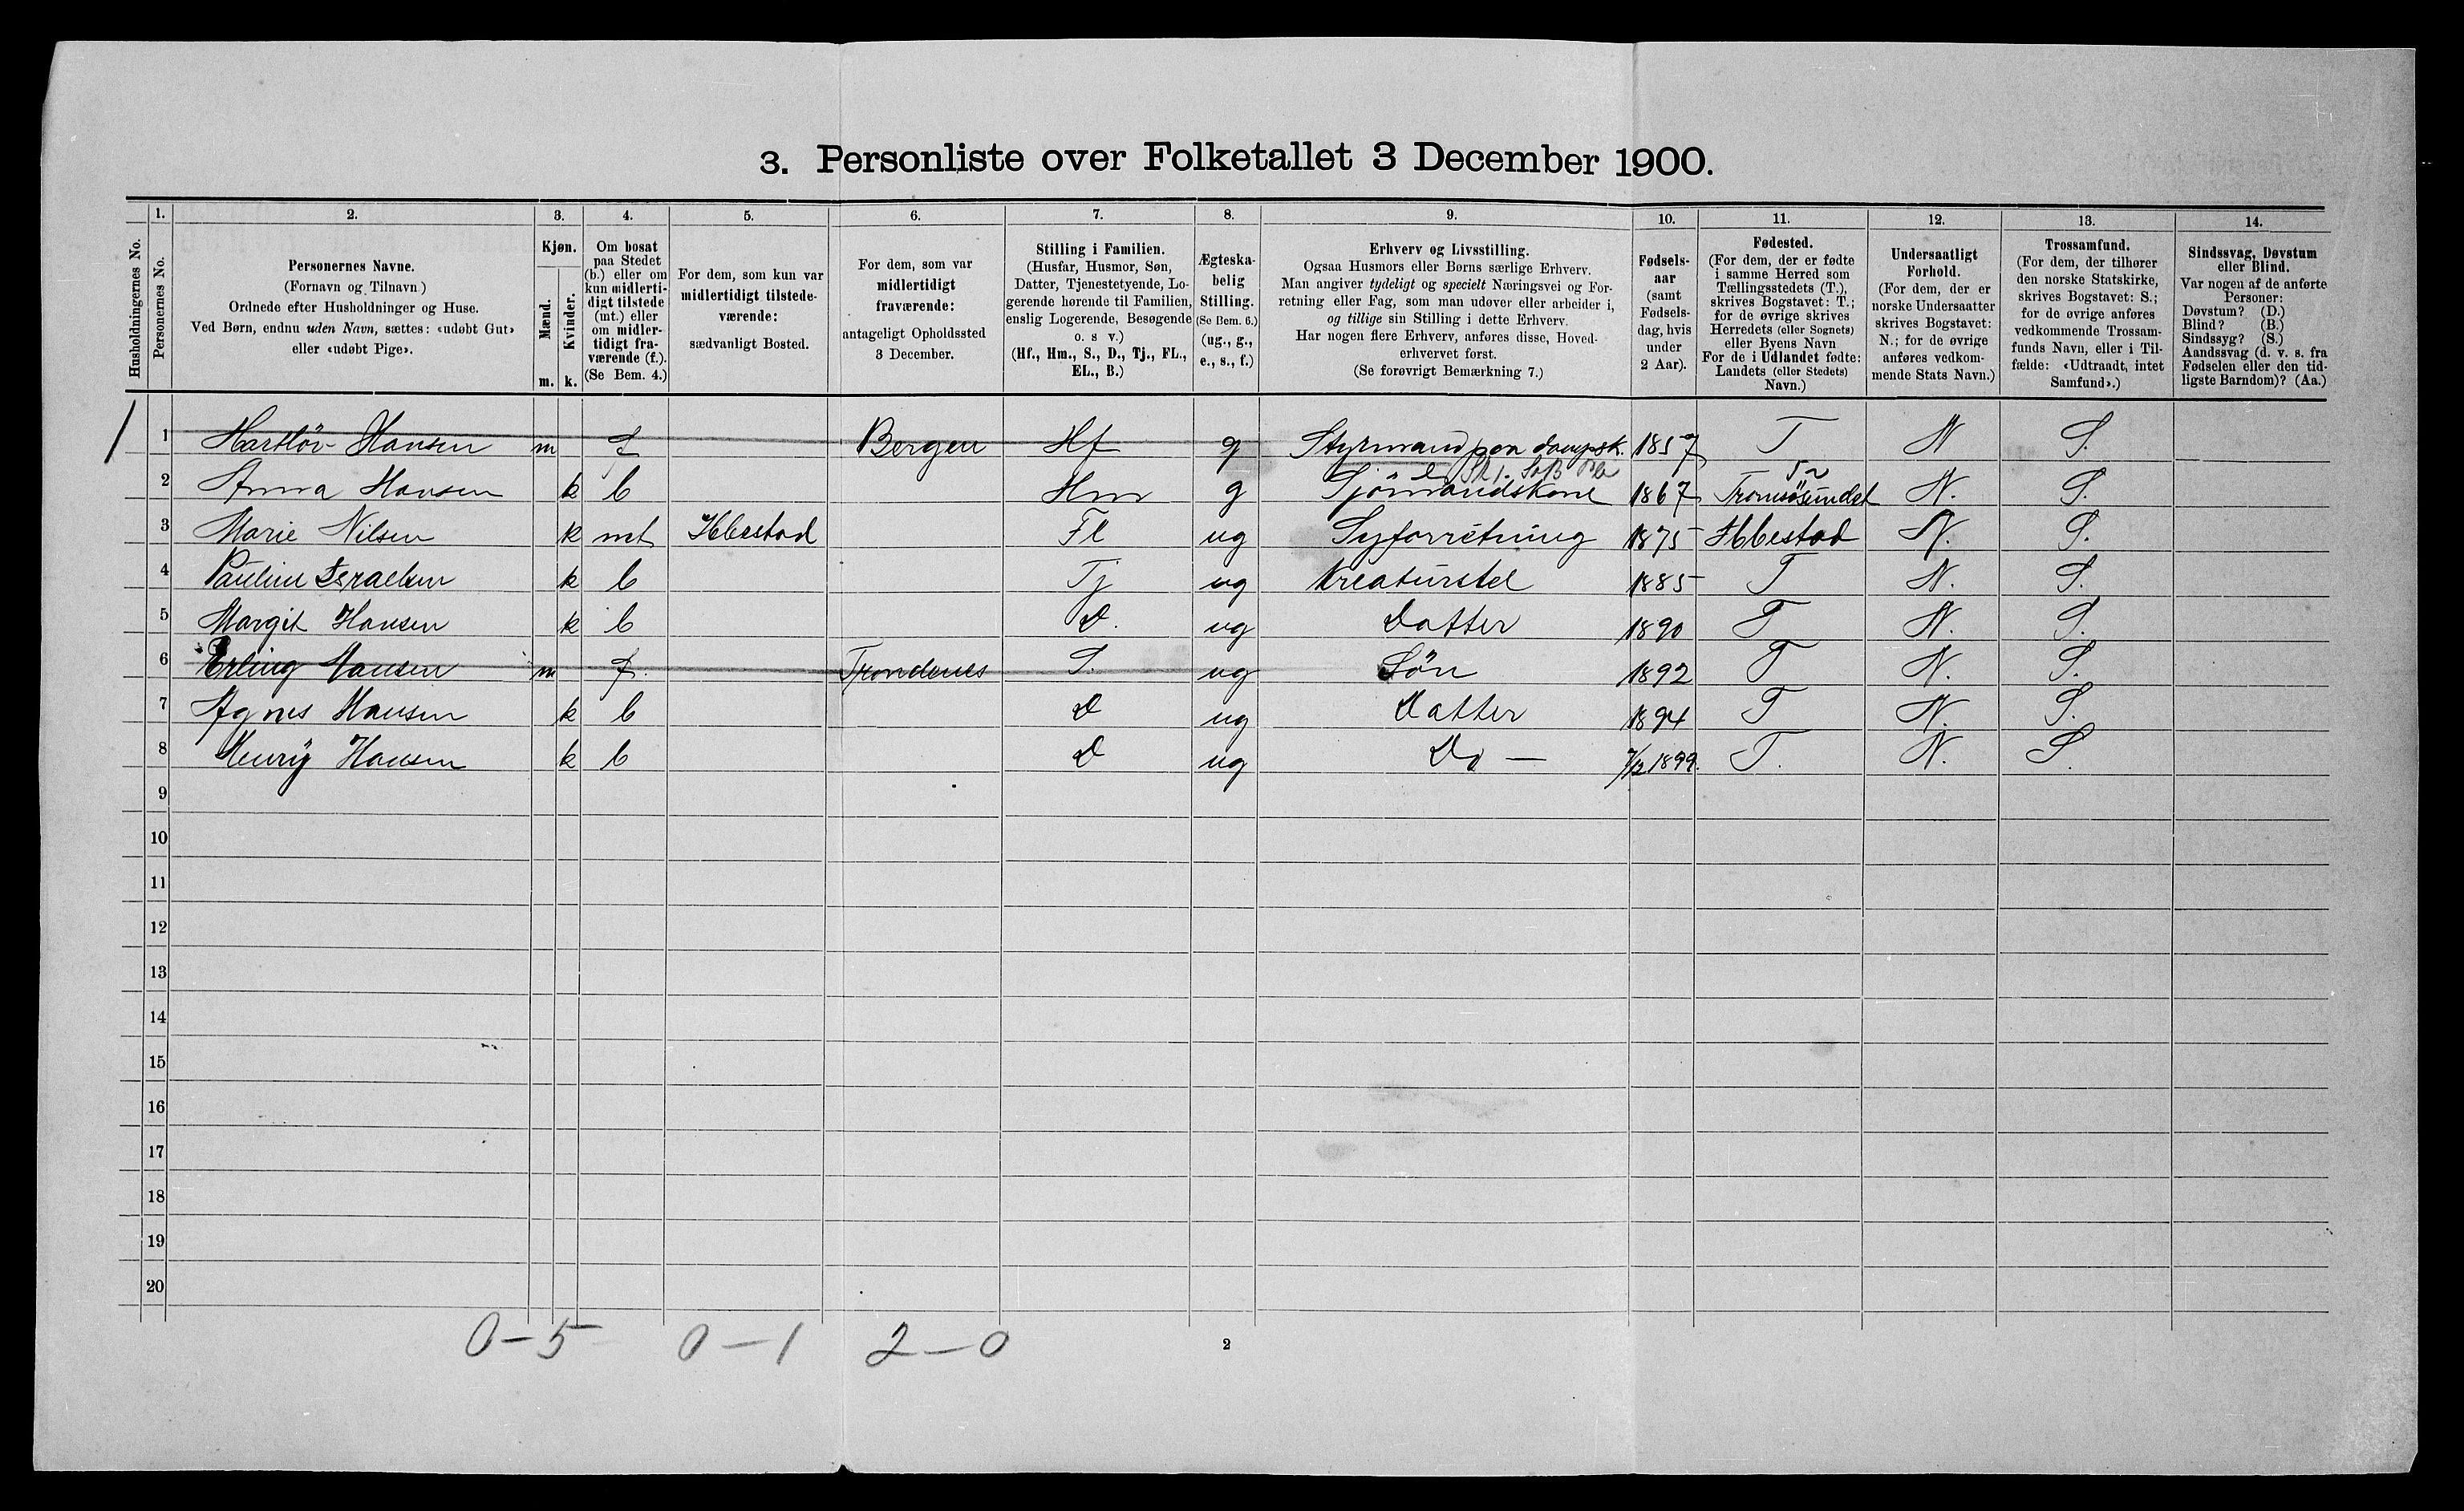 3. Personliste over Folketallet 3 December 1900.
1. 2. 3. 4. 5. 6. 7. 8. 9. 10. 11. 12. 13. 14.
Husholdningernes No.
Personernes No.
Personernes Navne.
(Fornavn og Tilnavn)
Ordnede efter Husholdninger og Huse.
Ved Børn, endnu uden Navn, sættes: «udøbt Gut»
eller «udøbt Pige».
Kjøn.
Mænd.
Kvinder.
m. k.
Om bosat
paa Stedet
(b.) eller om
kun midlerti-
digt tilstede
(mt.) eller
om midler-
tidigt fra-
værende (f.).
(Se Bem. 4.)
For dem, som kun var
midlertidigt tilstede-
værende:
sædvanligt Bosted.
For dem, som var
midlertidigt
fraværende:
antageligt Opholdssted
3 December.
Stilling i Familien.
(Husfar, Husmor, Søn,
Datter, Tjenestetyende, Lo-
gerende hørende til Familien,
enslig Logerende, Besøgende
o. s v.)
(Hf., Hm., S., D., Tj., FL.,
EL., B.)
Ægteska-
belig
Stilling.
(Se Bem. 6.)
(ug., g.,
e., s., f.)
Erhverv og Livsstilling.
Ogsaa Husmors eller Børns særlige Erhverv.
Man angiver tydeligt og specielt Næringsvei og For-
retning eller Fag, som man udøver eller arbeider i,
og tillige sin Stilling i dette Erhverv.
Har nogen flere Erhverv, anføres disse, Hoved-
erhvervet først.
(Se forøvrigt Bemærkning 7.)
Fødsels-
aar
(samt
Fødsels-
dag, hvis
under
2 Aar).
Fødested.
(For dem, der er fødte
i samme Herred som
Tællingsstedets (T.),
skrives Bogstavet: T.;
for de øvrige skrives
Herredets (eller Sognets)
eller Byens Navn
For de i Udlandet fødte:
Landets (eller Stedets)
Navn.)
Undersaatligt
Forhold.
(For dem, der er
norske Undersaatter
skrives Bogstavet:
N.; for de øvrige
anføres vedkom-
mende Stats Navn.)
Trossamfund.
(For dem, der tilhører
den norske Statskirke,
skrives Bogstavet: S.;
for de øvrige anføres
vedkommende Trossam-
funds Navn, eller i Til-
fælde: «Udtraadt, intet
Samfund».)
Sindssvag, Døvstum
eller Blind.
Var nogen af de anførte
Personer:
Døvstum? (D.)
Blind? (B.)
Sindssyg? (S.)
Aandssvag (d. v. s. fra
Fødselen eller den tid-
ligste Barndom)? (Aa.)
1 1 Hartløv Hansen m f Bergen Hf g Styrmand paa dampsk. 1857 T N S.
2 Anna Hansen k b Hm g Sjömandskone 1867 Tromsösundet N. S.
3 Marie Nilsen k mt Ibbestad Fl ug Syforretning 1875 Ibbestad N. S.
4 Pauline Israelsen k b Tj ug Kreaturstel 1885 T N. S.
5 Margit Hansen k b D. ug Datter 1890 T N. S.
6 Erling Hansen m f. Trondenes S. ug Sön 1892 T N. S.
7 Agnes Hansen k b D ug Datter 1894 T N. S.
8 Henry Hansen k b D ug Do — 7/12 1899. T. N. S.
9
10
11
12
13
14
15
16
17
18
19
20
0-5 0-1 2-0
2